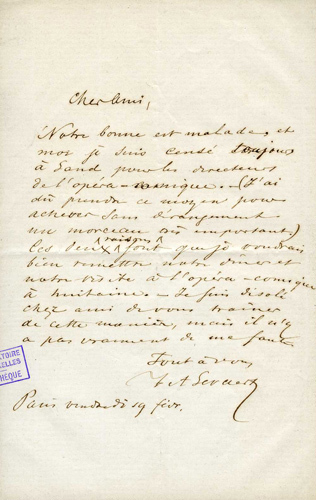 Cher Ami,
Notre bonne est malade, et
moi je suis censé toujours
à Gand pour les directeurs
de l'opéra-comique. (J'ai
dû prendre ce moyen pour
achever sans dérangement
un morceau très important.)
Ces deux raisons font que je voudrais
bien remettre notre dîner et
notre visite à l'opéra-comique
à huitaine. - Je suis désolé
cher ami de vous traîner
de cette manière, mais il n'y
a pas vraiment de ma faute
Tout à vous,
F A Gevaert
Paris vendredi 19 févr.
TOIRE
ELLES
THÈQUE